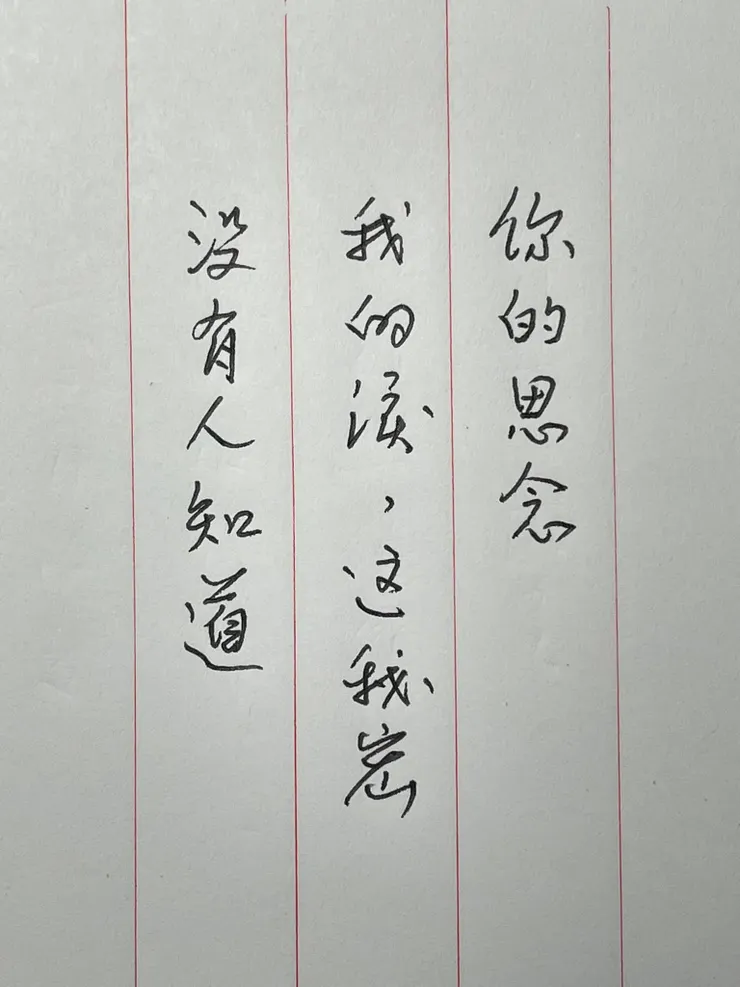 你的思念
我的泪，这我岩
没有人知道